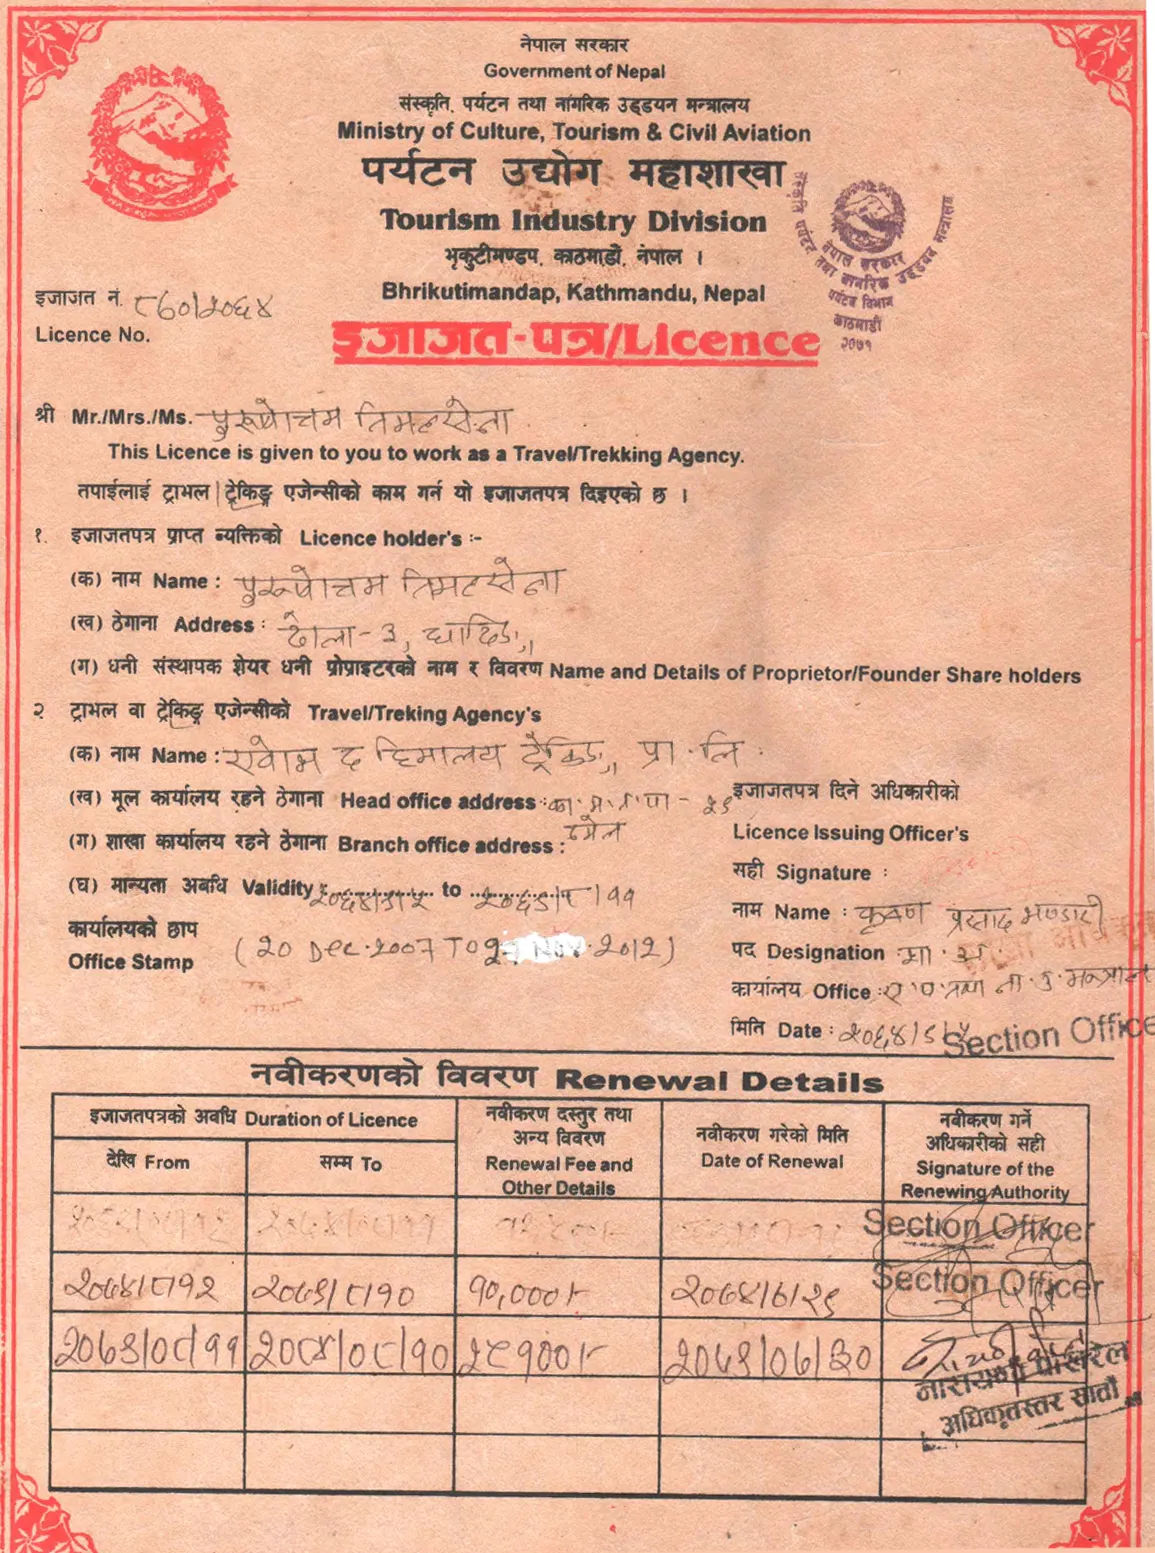 नेपाल सरकार
Government of Nepal
संस्कृति, पर्यटन तथा नागरिक उड्डयन मन्त्रालय
Ministry of Culture, Tourism & Civil Aviation
पर्यटन उद्योग महाशाखा
Tourism Industry Division
भृकुटीमण्डप, काठमाडौं, नेपाल ।
Bhrikutimandap, Kathmandu, Nepal
संस्कृति पर्यटन तथा नागरिक उड्डयन मन्त्रालय
नेपाल सरकार
पर्यटन विभाग
काठमाडौं
२०७१
इजाजत नं. ८६०/२०६४
Licence No.
इजाजत-पत्र/Licence
श्री Mr./Mrs./Ms. पुरूषोत्तम तिमल्सेना
This Licence is given to you to work as a Travel/Trekking Agency.
तपाईलाई ट्राभल | ट्रेकिङ्ग एजेन्सीको काम गर्न यो इजाजतपत्र दिइएको छ ।
१. इजाजतपत्र प्राप्त व्यक्तिको Licence holder's :-
(क) नाम Name : पुरूषोत्तम तिमल्सेना
(ख) ठेगाना Address : ढोला - ३, धादिङ्ग
(ग) धनी संस्थापक शेयर धनी प्रोप्राइटरको नाम र विवरण Name and Details of Proprietor/Founder Share holders
२ ट्राभल वा ट्रेकिङ्ग एजेन्सीको Travel/Treking Agency's
(क) नाम Name : द हिमालय ट्रेकिङ्ग प्रा. लि.
(ख) मूल कार्यालय रहने ठेगाना Head office address : का. म. न. पा - २९
ठमेल
(ग) शाखा कार्यालय रहने ठेगाना Branch office address :
(घ) मान्यता अवधि Validity : to २०६९/८/११
(20 Dec. 2007 TO Nov. 2012)
कार्यालयको छाप
Office Stamp
इजाजतपत्र दिने अधिकारीको
Licence Issuing Officer's
सही Signature :
नाम Name : कृष्ण प्रसाद भण्डारी
पद Designation : शा. अ.
कार्यालय Office :
मिति Date : २०६४/९/५
Section Officer
नवीकरणको विवरण Renewal Details
इजाजतपत्रको अवधि Duration of Licence
देखि From
सम्म To
नवीकरण दस्तुर तथा
अन्य विवरण
Renewal Fee and
Other Details
नवीकरण गरेको मिति
Date of Renewal
नवीकरण गर्ने
अधिकारीको सही
Signature of the
Renewing Authority
Section Officer
२०७४/८/१२ २०७९/८/१० १०,०००/- २०७४/७/२९ Section Officer
२०७९/०८/११ २०८४/०८/१० २५१००/- २०७९/०७/३०
नारायणी पोखरेल
अधिकृतस्तर सातौं